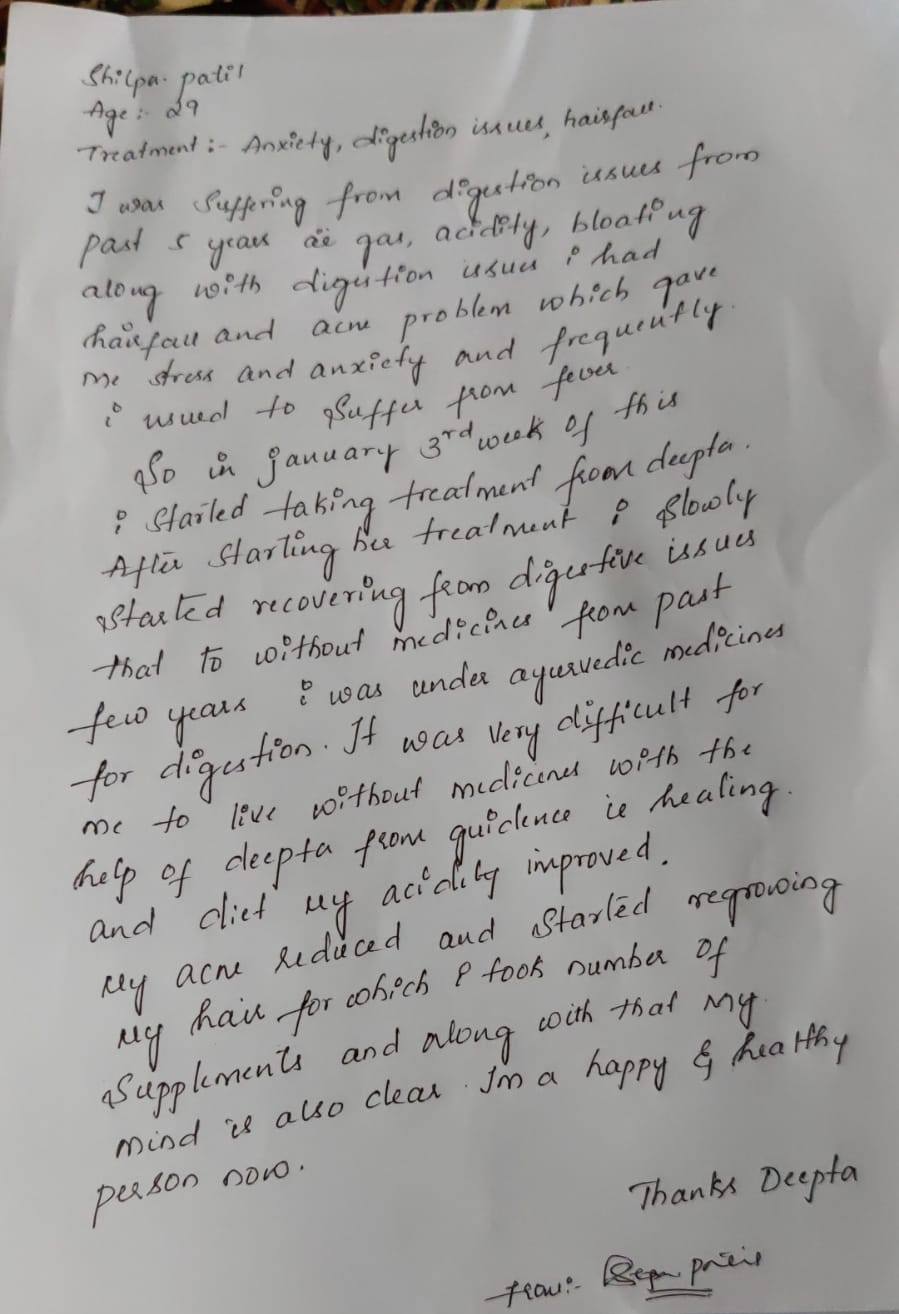 Shilpa. patil
Age :- 29
Treatment :- Anxiety, digestion issues, hairfall.
I was suffering from digestion issues from
past 5 years ie gas, acidity, bloating
along with digestion issues i had
hairfall and acne problem which gave
me stress and anxiety and frequently.
i usued to suffer from fever
So in january 3rd week of this
i started taking treatment from deepta.
After starting her treatment i slowly
started recovering from digestive issues
that to without medicines from past
few years i was under ayurvedic medicines
for digestion. It was very difficult for
me to live without medicines with the
help of deepta from guidence ie healing.
and diet my acidity improved.
My acne reduced and started regrowing
my hair for which I took number of
supplements and along with that my
mind is also clear. Im a happy & healthy
person now.
Thanks Deepta
from:-